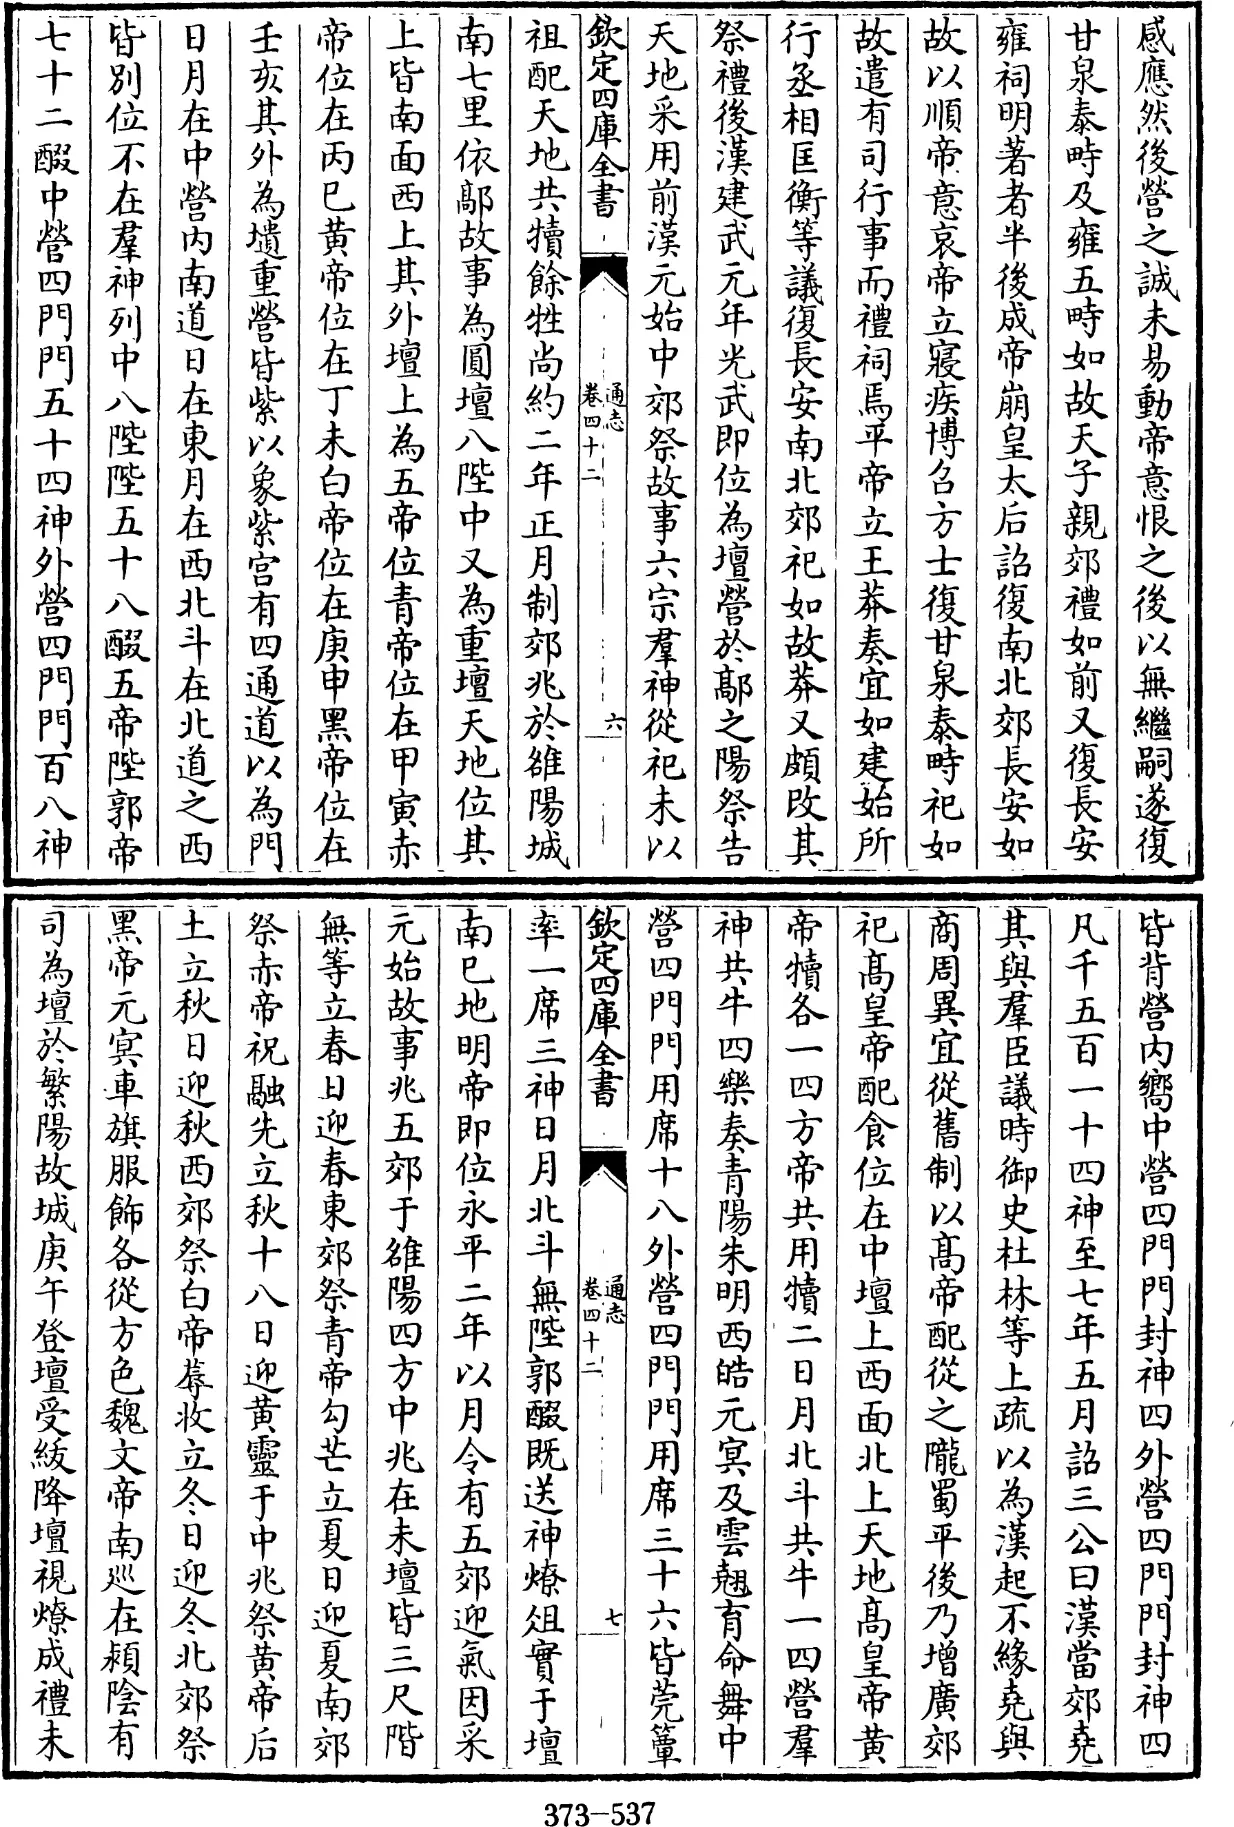 感應然後營之誠未易動帝意恨之後以無繼嗣遂復
甘泉泰畤及雍五畤如故天子親郊禮如前又復長安
雍祠明著者半後成帝崩皇太后詔復南北郊長安如
故以順帝意哀帝立寢疾博召方士復甘泉泰畤祀如
故遣有司行事而禮祠焉平帝立王莽奏宜如建始所
行丞相匡衡等議復長安南北郊祀如故莽又頗改其
祭禮後漢建武元年光武即位為壇營於鄗之陽祭告
天地采用前漢元始中郊祭故事六宗羣神從祀未以
欽定四庫全書
通志
卷四十二
六
祖配天地共犢餘牲尚約二年正月制郊兆於雒陽城
南七里依鄗故事為圓壇八陛中又為重壇天地位其
上皆南面西上其外壇上為五帝位青帝位在甲寅赤
帝位在丙巳黄帝位在丁未白帝位在庚申黑帝位在
壬亥其外為壝重營皆紫以象紫宮有四通道以為門
日月在中營内南道日在東月在西北斗在北道之西
皆別位不在羣神列中八陛陛五十八醊五帝陛郭帝
七十二醊中營四門門五十四神外營四門門百八神
皆背營内嚮中營四門門封神四外營四門門封神四
凡千五百一十四神至七年五月詔三公曰漢當郊堯
其與羣臣議時御史杜林等上疏以為漢起不緣堯與
商周異宜從舊制以髙帝配從之隴蜀平後乃增廣郊
祀髙皇帝配食位在中壇上西面北上天地髙皇帝黄
帝犢各一四方帝共用犢二日月北斗共牛一四營羣
神共牛四樂奏青陽朱明西皓元冥及雲翹育命舞中
營四門門用席十八外營四門門用席三十六皆莞簟
欽定四庫全書
通志
卷四十二
七
率一席三神日月北斗無陛郭醊既送神燎俎實于壇
南巳地明帝即位永平二年以月令有五郊迎氣因采
元始故事兆五郊于雒陽四方中兆在未壇皆三尺階
無等立春日迎春東郊祭青帝勾芒立夏日迎夏南郊
祭赤帝祝融先立秋十八日迎黄靈于中兆祭黄帝后
土立秋日迎秋西郊祭白帝蓐收立冬日迎冬北郊祭
黑帝元冥車旗服飾各從方色魏文帝南巡在潁陰有
司為壇於繁陽故城庚午登壇受紱降壇視燎成禮未
373-537